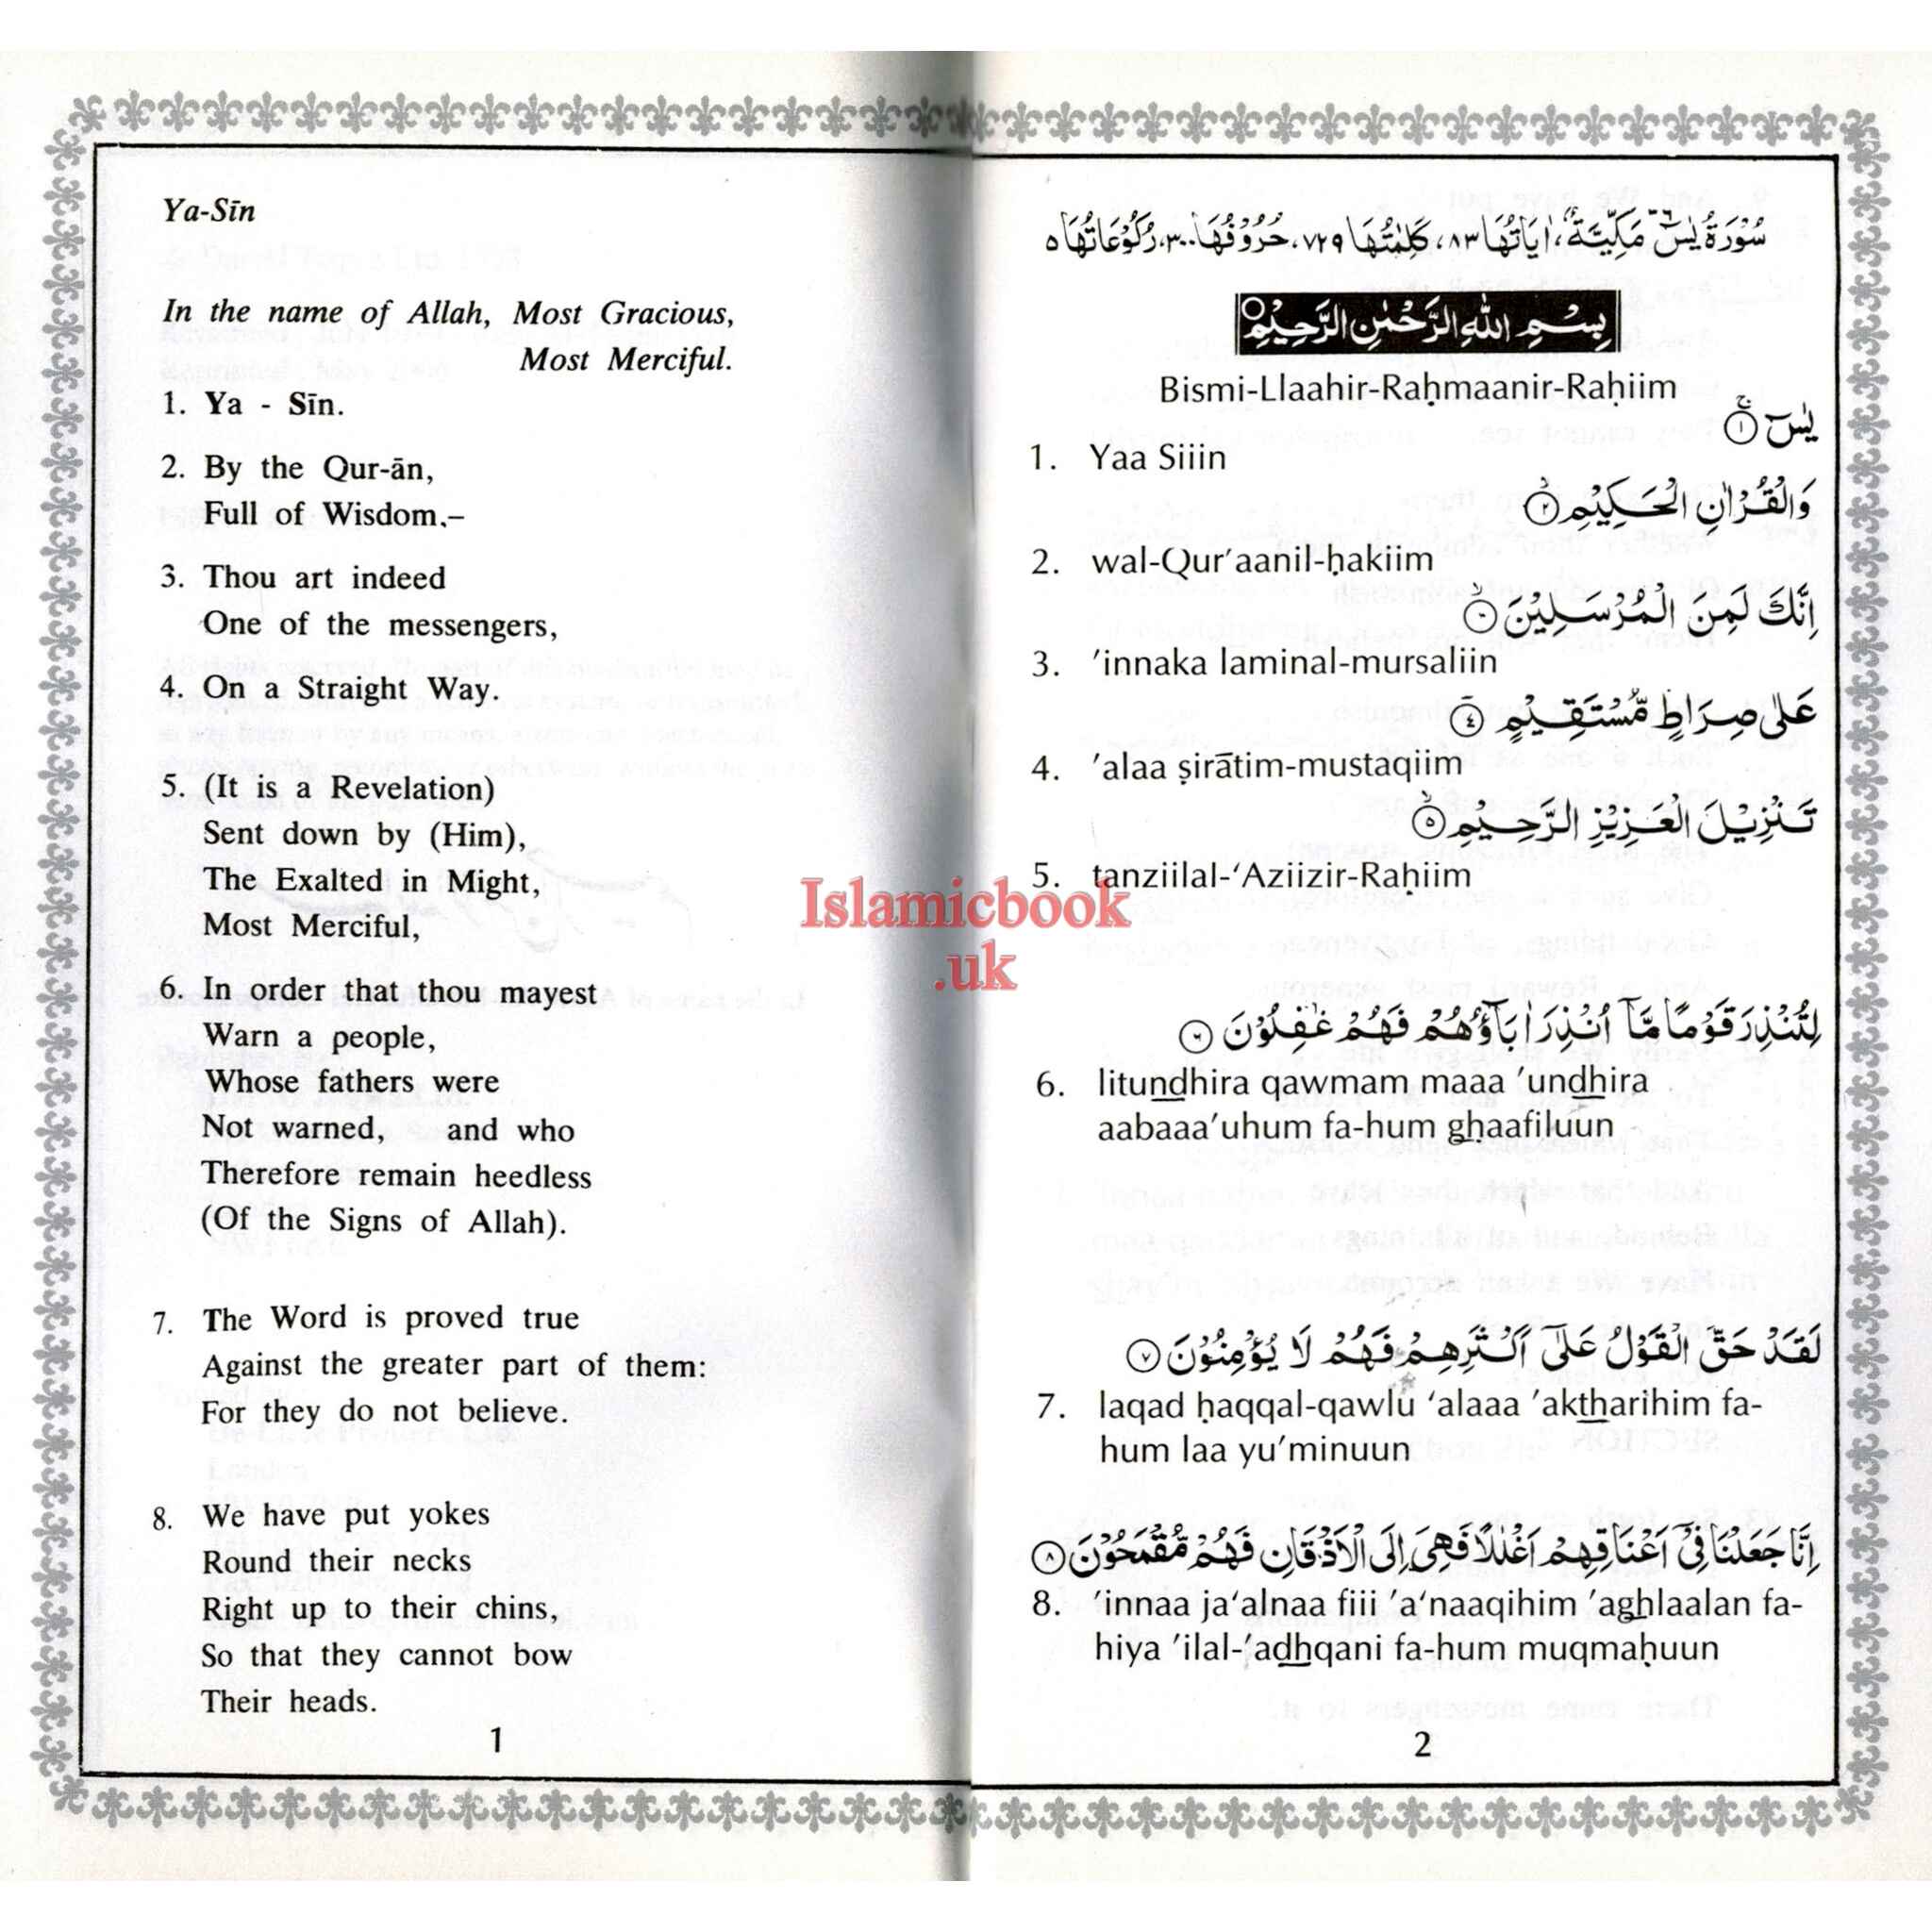 Ya-Sīn
In the name of Allah, Most Gracious,
Most Merciful.
1. Ya - Sīn.
2. By the Qur-ān,
Full of Wisdom,–
3. Thou art indeed
One of the messengers,
4. On a Straight Way.
5. (It is a Revelation)
Sent down by (Him),
The Exalted in Might,
Most Merciful,
6. In order that thou mayest
Warn a people,
Whose fathers were
Not warned, and who
Therefore remain heedless
(Of the Signs of Allah).
7. The Word is proved true
Against the greater part of them:
For they do not believe.
8. We have put yokes
Round their necks
Right up to their chins,
So that they cannot bow
Their heads.
1
سُوْرَةُ يٰسٓ مَكِّيَّةٌ، اٰيَاتُهَا ٨٣، كَلِمٰتُهَا ٧٢٩، حُرُوْفُهَا ٣٠٠٠، رُكُوْعَاتُهَا ٥
بِسْمِ اللّٰهِ الرَّحْمٰنِ الرَّحِيْمِ
Bismi-Llaahir-Raḥmaanir-Raḥiim
يٰسٓ ۚ ﴿١﴾
1. Yaa Siiin
وَالْقُرْاٰنِ الْحَكِيْمِ ۙ ﴿٢﴾
2. wal-Qur’aanil-ḥakiim
اِنَّكَ لَمِنَ الْمُرْسَلِيْنَ ۙ
3. ’innaka laminal-mursaliin
عَلٰى صِرَاطٍ مُّسْتَقِيْمٍ ۭ ﴿٤﴾
4. ’alaa ṣirātim-mustaqiim
تَنْزِيْلَ الْعَزِيْزِ الرَّحِيْمِ ۙ ﴿٥﴾
5. tanziilal-‘Aziizir-Raḥiim
Islamicbook
.uk
لِتُنْذِرَ قَوْمًا مَّآ اُنْذِرَ اٰبَآؤُهُمْ فَهُمْ غٰفِلُوْنَ ﴿٦﴾
6. litundhira qawmam maaa ’undhira
aabaaa’uhum fa-hum ghaafiluun
لَقَدْ حَقَّ الْقَوْلُ عَلٰٓى اَكْثَرِهِمْ فَهُمْ لَا يُؤْمِنُوْنَ ﴿٧﴾
7. laqad ḥaqqal-qawlu ‘alaaa ’aktharihim fa-
hum laa yu’minuun
اِنَّا جَعَلْنَا فِيْٓ اَعْنَاقِهِمْ اَغْلٰلًا فَهِيَ اِلَى الْاَذْقَانِ فَهُمْ مُّقْمَحُوْنَ ﴿٨﴾
8. ’innaa ja‘alnaa fiii ’a‘naaqihim ’aghlaalan fa-
hiya ’ilal-’adhqani fa-hum muqmaḥuun
2